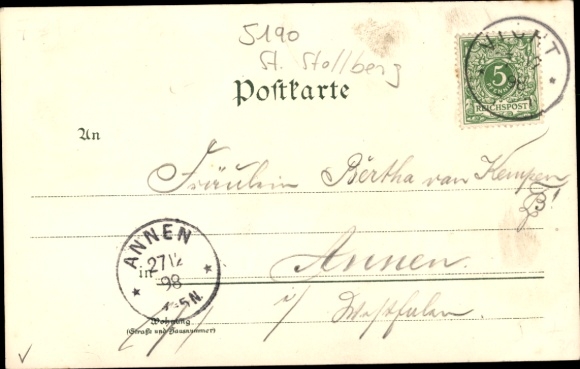 5190
St. Stollberg
Postkarte
5
REICHSPOST
An
Fräulein Bertha van Kempen
ANNEN
27 12
98
4-5N.
in
Annen
i/ Westfalen
Wohnung
(Straße und Hausnummer)